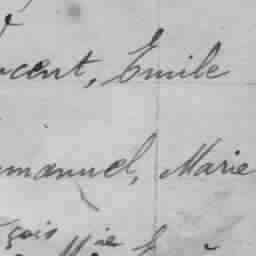 ocent, Emile
manuel, Marie
çois Mie